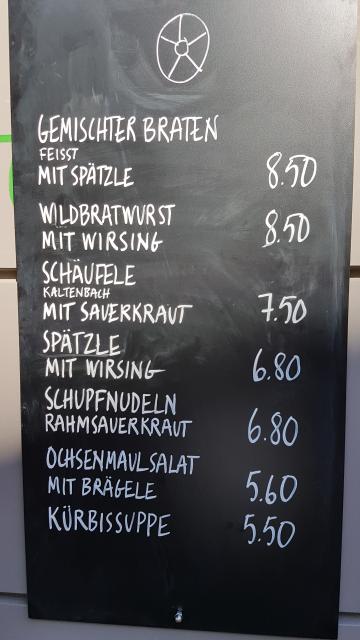 GEMISCHTER BRATEN
FEISST
MIT SPÄTZLE 8.50
WILDBRATWURST
MIT WIRSING 8.50
SCHÄUFELE
KALTENBACH
MIT SAUERKRAUT 7.50
SPÄTZLE
MIT WIRSING 6.80
SCHUPFNUDELN
RAHMSAUERKRAUT 6.80
OCHSENMAULSALAT
MIT BRÄGELE 5.60
KÜRBISSUPPE 5.50